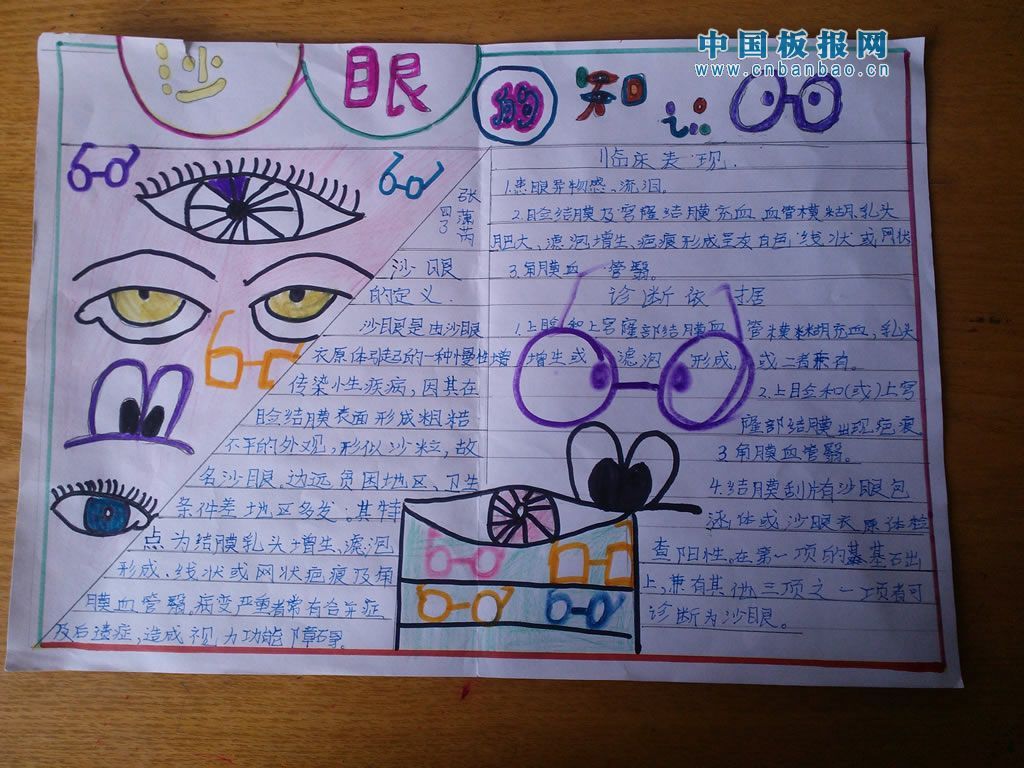 中国板报网
www.cnbanbao.cn
沙眼的知识
张潇芮
四3
沙眼
的定义.
沙眼是由沙眼
衣原体引起的一种慢性
传染性疾病,因其在
睑结膜表面形成粗糙
不平的外观,形似沙粒,故
名沙眼.边远贫困地区、卫生
条件差地区多发。其特
点为结膜乳头增生、滤泡
形成、线状或网状疤痕及角
膜血管翳,病变严重者常有合并症
及后遗症,造成视力功能障碍。
临床表现.
1.患眼异物感、流泪。
2.睑结膜及穹窿结膜充血、血管模糊、乳头
肥大、滤泡增生、疤痕形成呈灰白色线状或网状
3.角膜血管翳。
诊断依据
1.上睑和上穹窿部结膜血管模糊充血,乳头
增生或滤泡形成,或二者兼有。
2.上睑和(或)上穹
窿部结膜出现疤痕
3.角膜血管翳。
4.结膜刮片有沙眼包
涵体或沙眼衣原体检
查阳性。在第一项的基基石出
上,兼有其他三项之一项者可
诊断为沙眼。